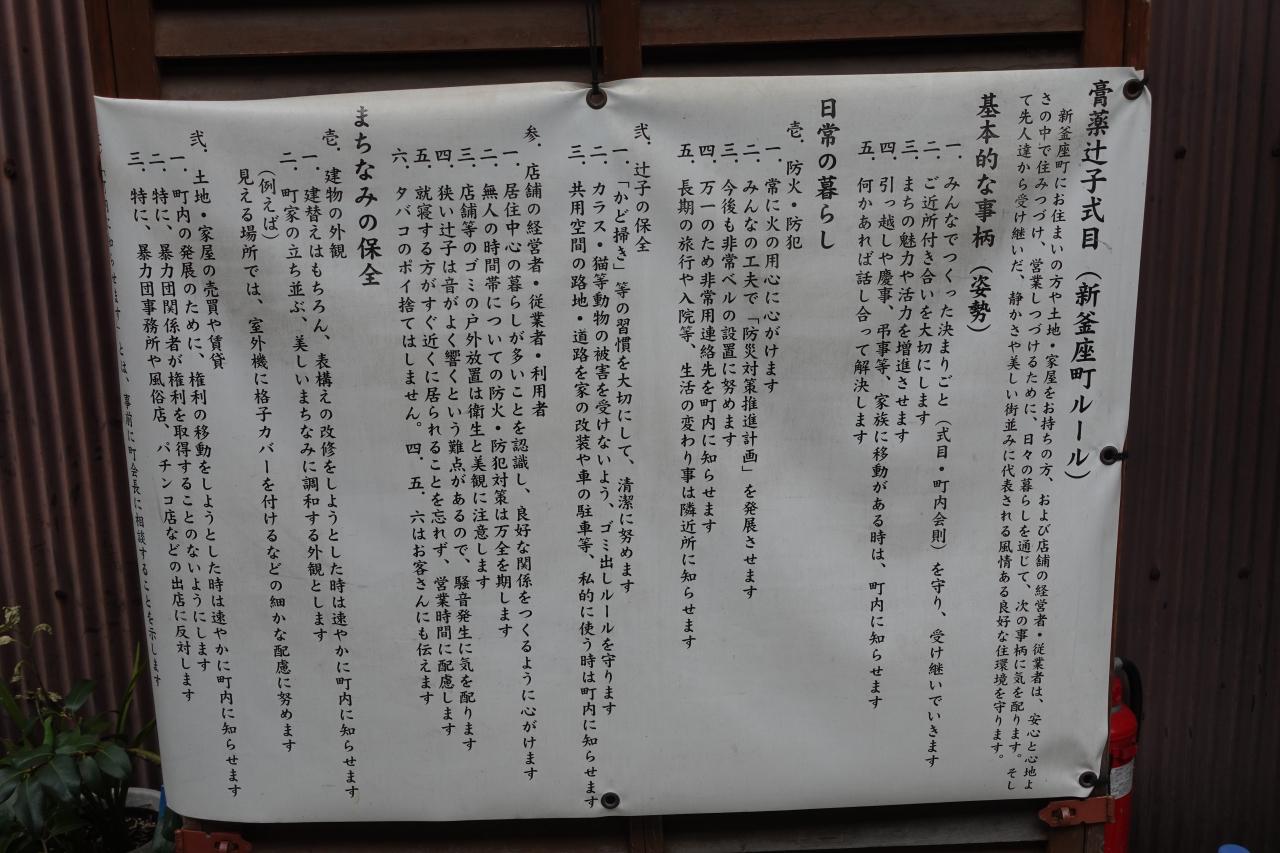 膏薬辻子式目（新釜座町ルール）
新釜座町にお住まいの方や土地・家屋をお持ちの方、および店舗の経営者・従業者は、安心と心地よ
さの中で住みつづけ、営業しつづけるために、日々の暮らしを通じて、次の事柄に気を配ります。そし
て先人達から受け継いだ、静かさや美しい街並みに代表される風情ある良好な住環境を守ります。
基本的な事柄（姿勢）
一．みんなでつくった決まりごと（式目・町内会則）を守り、受け継いでいきます
二．ご近所付き合いを大切にします
三．まちの魅力や活力を増進させます
四．引っ越しや慶事、弔事等、家族に移動がある時は、町内に知らせます
五．何かあれば話し合って解決します
日常の暮らし
壱．防火・防犯
一．常に火の用心に心がけます
二．みんなの工夫で「防災対策推進計画」を発展させます
三．今後も非常ベルの設置に努めます
四．万一のため非常用連絡先を町内に知らせます
五．長期の旅行や入院等、生活の変わり事は隣近所に知らせます
弐．辻子の保全
一．「かど掃き」等の習慣を大切にして、清潔に努めます
二．カラス・猫等動物の被害を受けないよう、ゴミ出しルールを守ります
三．共用空間の路地・道路を家の改装や車の駐車等、私的に使う時は町内に知らせます
参．店舗の経営者・従業者・利用者
一．居住中心の暮らしが多いことを認識し、良好な関係をつくるように心がけます
二．無人の時間帯についての防火・防犯対策は万全を期します
三．店舗等のゴミの戸外放置は衛生と美観に注意します
四．狭い辻子は音がよく響くという難点があるので、騒音発生に気を配ります
五．就寝する方がすぐ近くに居られることを忘れず、営業時間に配慮します
六．タバコのポイ捨てはしません。四．五．六はお客さんにも伝えます
まちなみの保全
壱．建物の外観
一．建替えはもちろん、表構えの改修をしようとした時は速やかに町内に知らせます
二．町家の立ち並ぶ、美しいまちなみに調和する外観とします
（例えば）
見える場所では、室外機に格子カバーを付けるなどの細かな配慮に努めます
弐．土地・家屋の売買や賃貸
一．町内の発展のために、権利の移動をしようとした時は速やかに町内に知らせます
二．特に、暴力団関係者が権利を取得することのないようにします
三．特に、暴力団事務所や風俗店、パチンコ店などの出店に反対します
とは、事前に町会長に相談することを示します